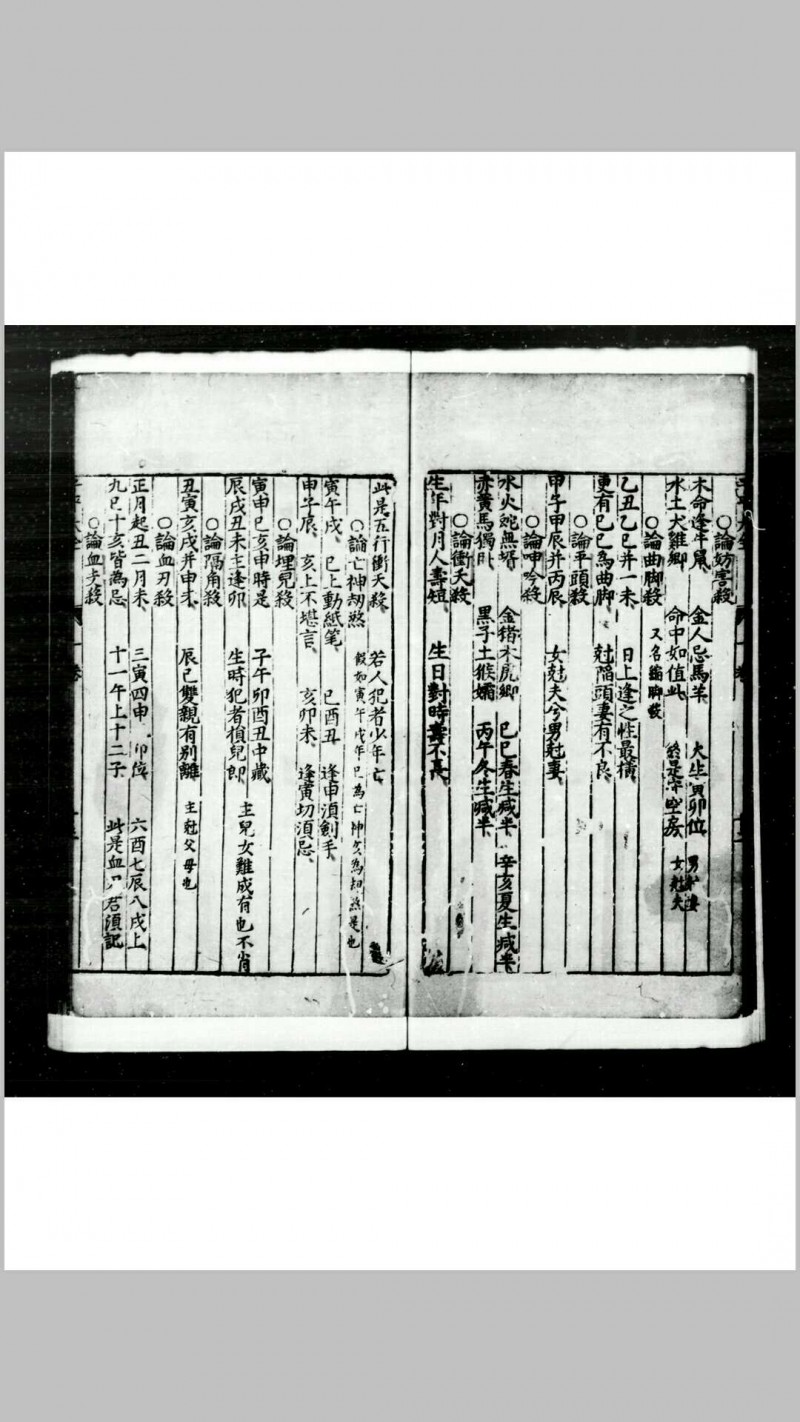 ○論妨害殺
木命逢牛鼠 金人忌馬羊 火生寅卯位
水土犬雞鄉 命中如值此 終是守空房 女尅夫
○論曲脚殺 又名 脚殺
乙丑乙巳并一未、 日上逢之性最橫
更有己巳為曲脚、 尅陷頭妻有不良、
○論平頭殺
甲子甲辰并丙辰、 女尅夫兮男尅妻、
○論呻吟殺
水火蛇無壻 金猪木虎鄉 巳巳春生喊半 辛亥夏生喊半
赤黃馬獨卧 黑子土猴孀 丙午冬生喊半
○論衝夭殺
生年對月人壽短、 生日對時壽不長、
此是五行衝夭殺、 若人犯者少年亡、
○論亡神刼煞 假如寅午戌年巳為亡神亥為刼煞是也
寅午戌、 巳上動紙笔、 巳酉丑、 逢申須劍手、
申子辰、 亥上不堪言、 亥卯未、 逢寅切須忌、
○論埋兒殺
寅申巳亥申時是 子午卯酉丑中藏
辰戌丑未主逢卯 生時犯者損兒郎 主兒女難成有也不肖
○論隔角殺
丑寅亥戌并申才、 辰巳雙親有别離 主尅父母也
○論血刃殺
正月起丑二月未、 三寅四申 卯位 六酉七辰八戌上
九巳十亥皆為忌 十一午上十二子 此是血刃君須記
○論血支殺